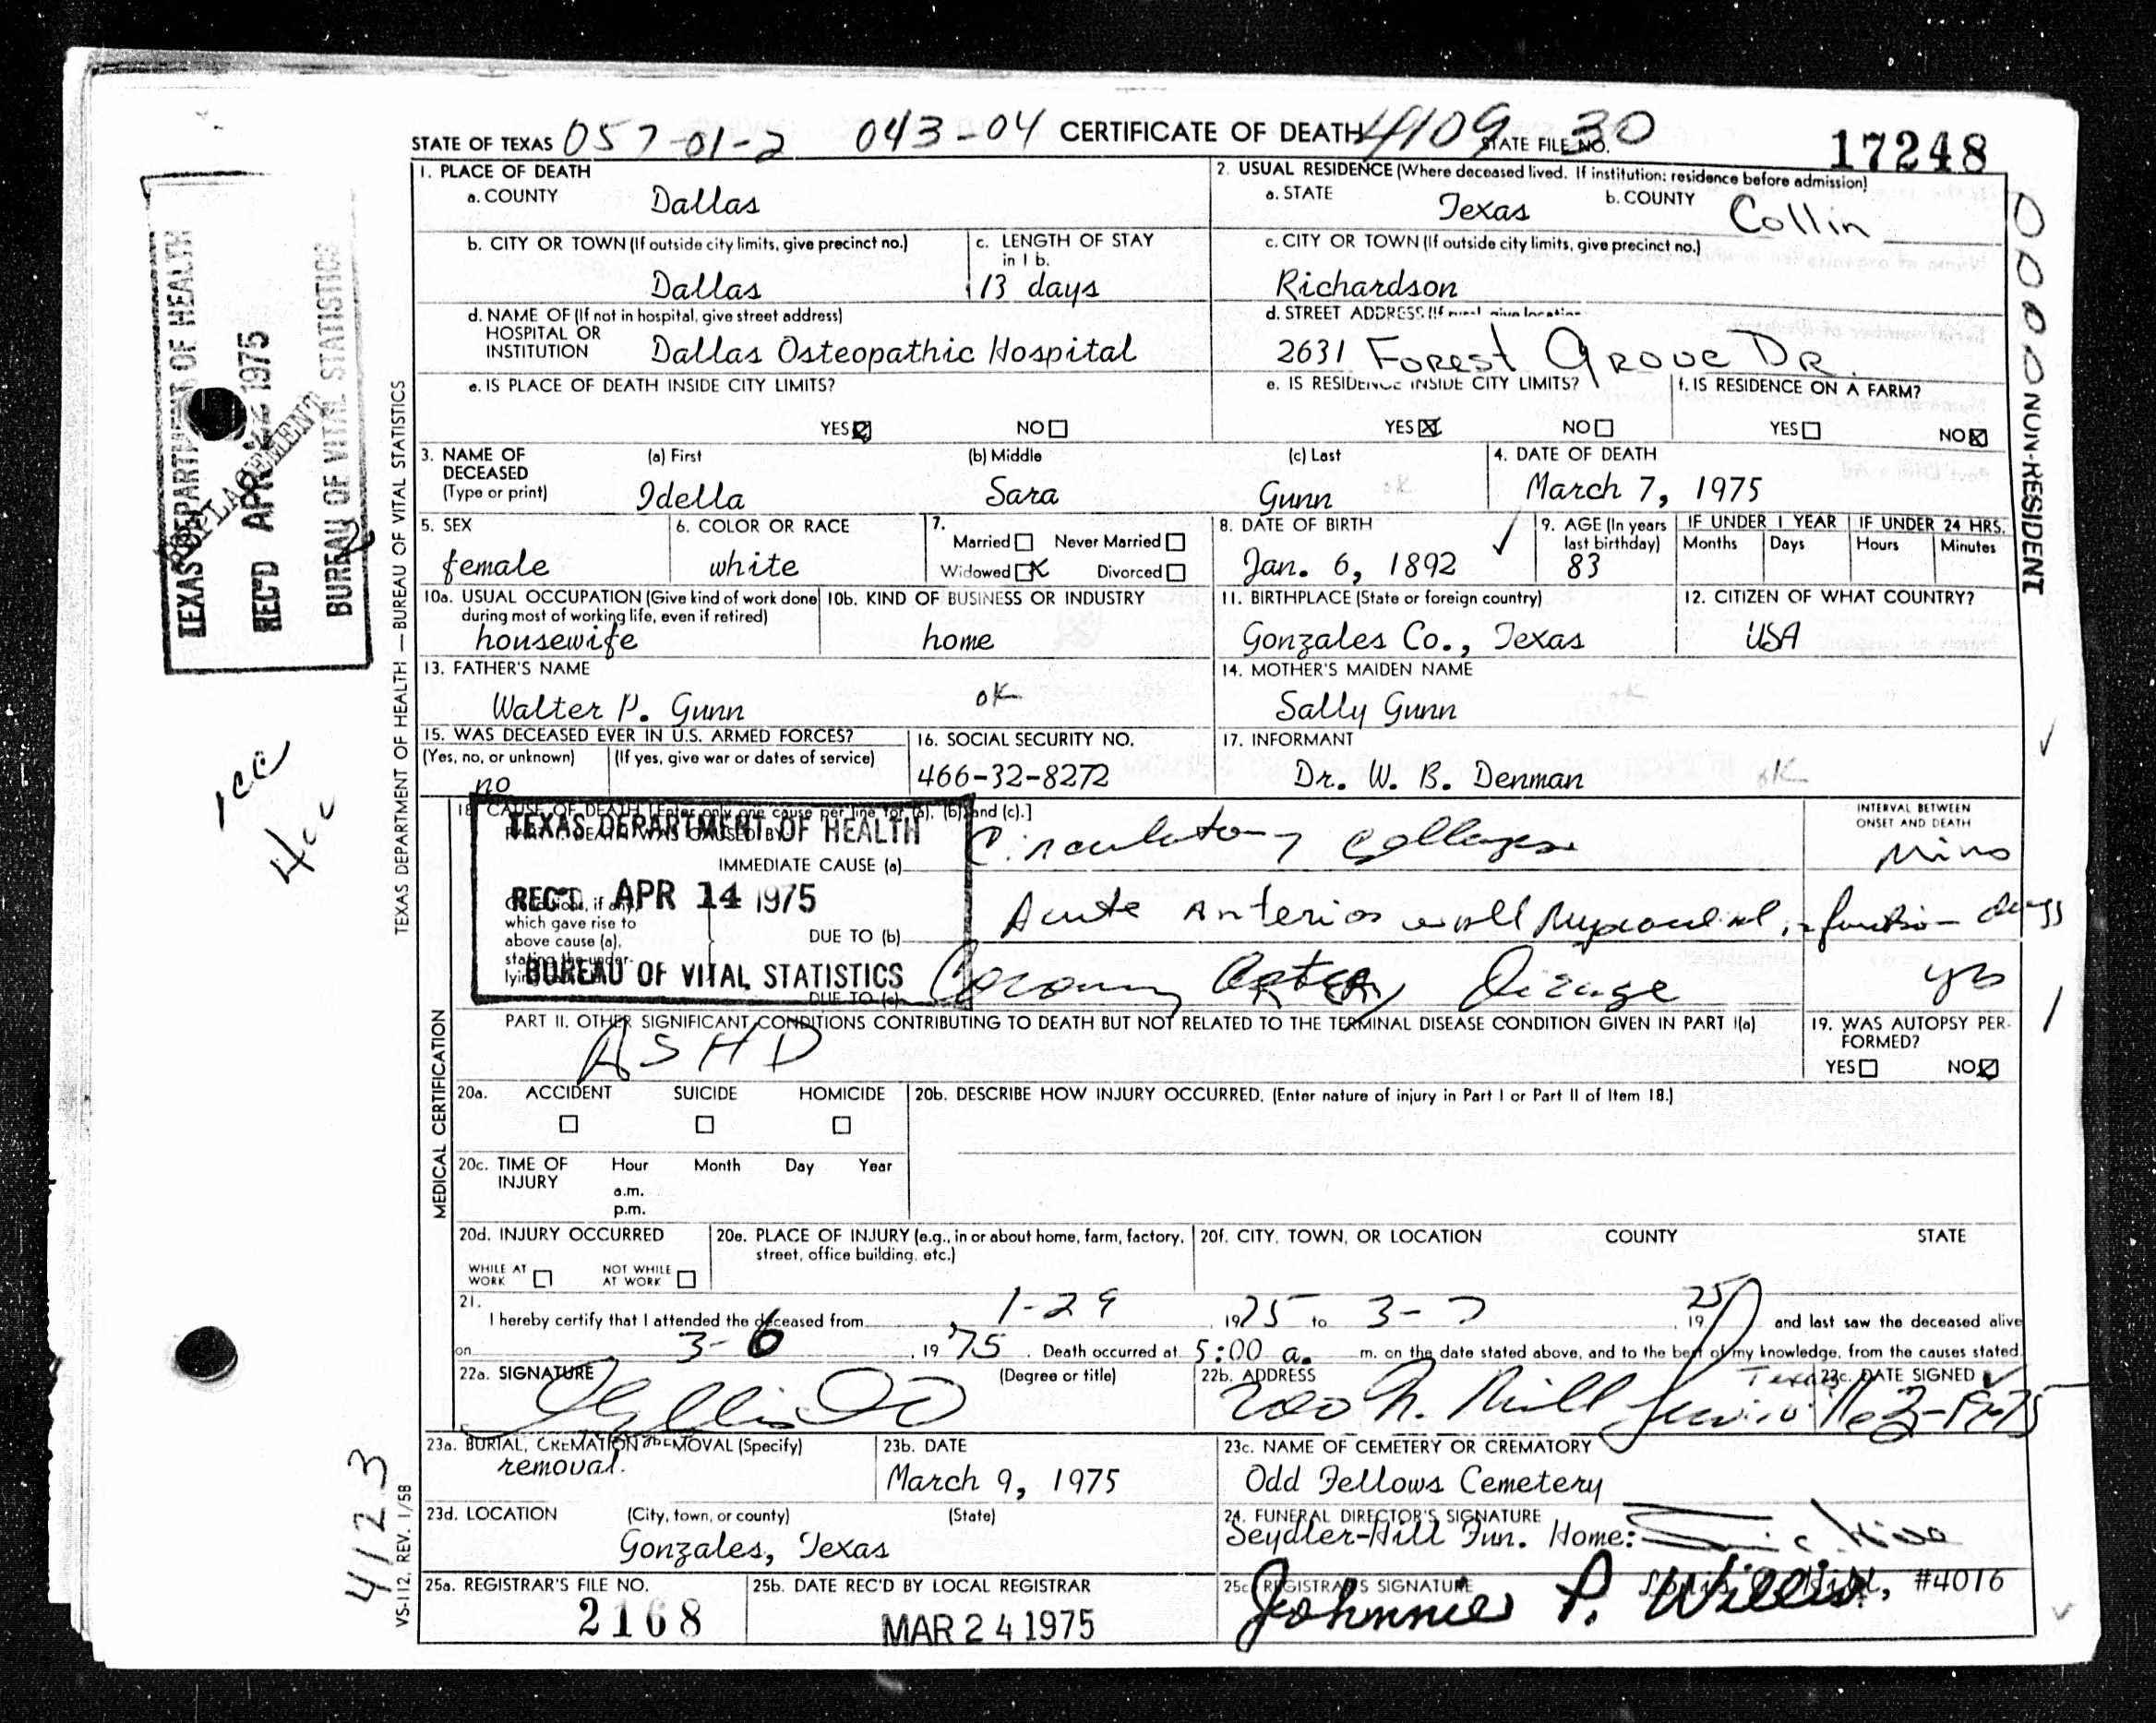 STATE OF TEXAS 057-01-2 043-04 CERTIFICATE OF DEATH 4109 STATE FILE NO. 30 17248
1. PLACE OF DEATH
a. COUNTY Dallas
2. USUAL RESIDENCE (Where deceased lived. If institution: residence before admission)
a. STATE Texas b. COUNTY Collin
b. CITY OR TOWN (If outside city limits, give precinct no.) Dallas
c. LENGTH OF STAY in 1 b. 13 days
c. CITY OR TOWN (If outside city limits, give precinct no.)
Richardson
d. NAME OF (If not in hospital, give street address)
HOSPITAL OR
INSTITUTION Dallas Osteopathic Hospital
d. STREET ADDRESS (If rural give location)
2631 Forest Grove Dr.
e. IS PLACE OF DEATH INSIDE CITY LIMITS?
YES NO
e. IS RESIDENCE INSIDE CITY LIMITS?
YES NO
f. IS RESIDENCE ON A FARM?
YES NO
3. NAME OF DECEASED (Type or print)
(a) First (b) Middle (c) Last
Idella Sara Gunn ok
4. DATE OF DEATH
March 7, 1975
5. SEX
female
6. COLOR OR RACE
white
7.
Married Never Married
Widowed Divorced
8. DATE OF BIRTH
Jan. 6, 1892
9. AGE (In years last birthday)
83
IF UNDER 1 YEAR
Months Days
IF UNDER 24 HRS.
Hours Minutes
10a. USUAL OCCUPATION (Give kind of work done during most of working life, even if retired)
housewife
10b. KIND OF BUSINESS OR INDUSTRY
home
11. BIRTHPLACE (State or foreign country)
Gonzales Co., Texas
12. CITIZEN OF WHAT COUNTRY?
USA
13. FATHER'S NAME
Walter P. Gunn ok
14. MOTHER'S MAIDEN NAME
Sally Gunn
15. WAS DECEASED EVER IN U.S. ARMED FORCES?
(Yes, no, or unknown) (If yes, give war or dates of service)
no
16. SOCIAL SECURITY NO.
466-32-8272
17. INFORMANT
Dr. W. B. Denman ok
18. CAUSE OF DEATH [Enter only one cause per line for (a), (b) and (c).]
PART I. DEATH WAS CAUSED BY:
IMMEDIATE CAUSE (a) Circulatory Collapse
INTERVAL BETWEEN ONSET AND DEATH
Mins
Conditions, if any,
which gave rise to
above cause (a),
stating the under-
lying
DUE TO (b) Acute Anterior wall Myocardial infarction days
DUE TO (c) Coronary Artery Disease yrs
TEXAS DEPARTMENT OF HEALTH
REC'D APR 14 1975
BUREAU OF VITAL STATISTICS
PART II. OTHER SIGNIFICANT CONDITIONS CONTRIBUTING TO DEATH BUT NOT RELATED TO THE TERMINAL DISEASE CONDITION GIVEN IN PART I(a)
ASHD
19. WAS AUTOPSY PER-
FORMED?
YES NO
20a. ACCIDENT SUICIDE HOMICIDE
20b. DESCRIBE HOW INJURY OCCURRED. (Enter nature of injury in Part I or Part II of Item 18.)
20c. TIME OF INJURY Hour Month Day Year
a.m.
p.m.
20d. INJURY OCCURRED
WHILE AT WORK NOT WHILE AT WORK
20e. PLACE OF INJURY (e.g., in or about home, farm, factory, street, office building. etc.)
20f. CITY, TOWN, OR LOCATION COUNTY STATE
21.
I hereby certify that I attended the deceased from 1-29, 1975 to 3-7, 1975 and last saw the deceased alive
on 3-6, 19 75. Death occurred at 5:00 a. m. on the date stated above, and to the best of my knowledge, from the causes stated.
22a. SIGNATURE (Degree or title)
22b. ADDRESS
Texas
22c. DATE SIGNED
23a. BURIAL, CREMATION REMOVAL (Specify)
removal.
23b. DATE
March 9, 1975
23c. NAME OF CEMETERY OR CREMATORY
Odd Fellows Cemetery
23d. LOCATION (City, town, or county) (State)
Gonzales, Texas
24. FUNERAL DIRECTOR'S SIGNATURE
Seydler-Hill Fun. Home:
#4016
25a. REGISTRAR'S FILE NO.
2168
25b. DATE REC'D BY LOCAL REGISTRAR
MAR 24 1975
25c. REGISTRAR'S SIGNATURE
Johnnie P. Willis
TEXAS DEPARTMENT OF HEALTH
REC'D APR 22 1975
BUREAU OF VITAL STATISTICS
REPLACEMENT
1cc
4cc
TEXAS DEPARTMENT OF HEALTH — BUREAU OF VITAL STATISTICS
MEDICAL CERTIFICATION
4/23
VS-112, REV. 1/58
0000 NON-RESIDENT